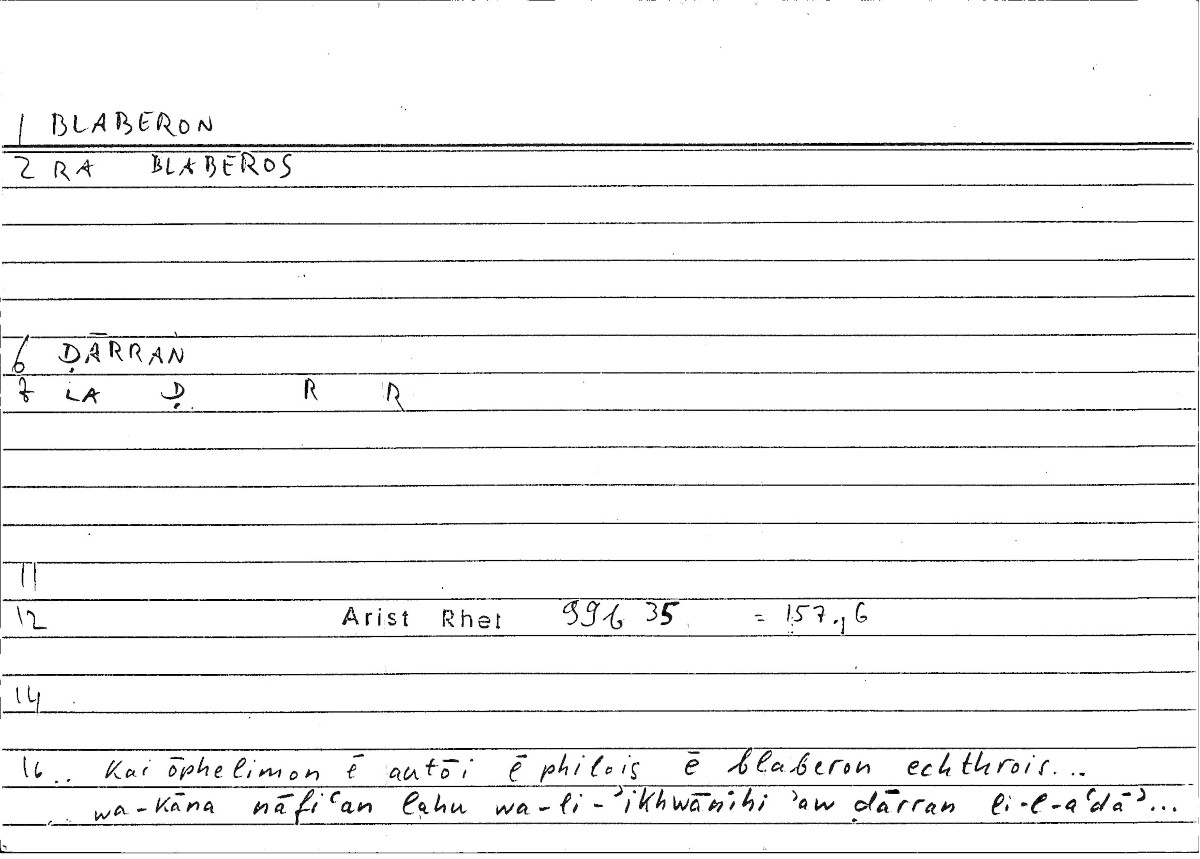 1 BLABERON
2 RA BLABEROS
6 ḌĀRRAN
7 LA Ḍ R R
11
12 Arist Rhet 99b 35 = 157.,6
14
16 .. kai ōphelimon ē autōi ē philois ē blaberon echthrois...
wa-kāna nāfiʿan lahu wa-li-ʾikhwānihi ʾaw ḍārran li-l-aʿdāʾ...